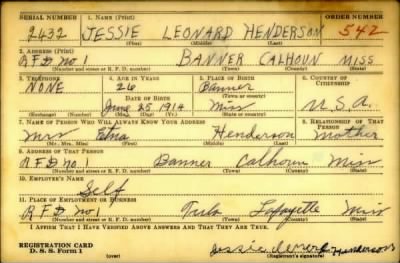 SERIAL NUMBER 1. NAME (Print) ORDER NUMBER
2432 JESSIE LEONARD HENDERSON 542
(First) (Middle) (Last)
2. ADDRESS (Print)
R.F.D. No 1 BANNER CALHOUN MISS
(Number and street or R. F. D. number) (Town) (County) (State)
3. TELEPHONE 4. AGE IN YEARS 5. PLACE OF BIRTH 6. COUNTRY OF CITIZENSHIP
NONE 26 Banner
DATE OF BIRTH (Town or county)
June 25 1914 Miss U.S.A.
(Exchange) (Number) (Mo.) (Day) (Yr.) (State or country)
7. NAME OF PERSON WHO WILL ALWAYS KNOW YOUR ADDRESS 8. RELATIONSHIP OF THAT PERSON
Mrs Henderson Mother
(Mr., Mrs., Miss) (First) (Middle) (Last)
9. ADDRESS OF THAT PERSON
R.F.D. No 1 Banner Calhoun Miss
(Number and street or R. F. D. number) (Town) (County) (State)
10. EMPLOYER'S NAME
Self
11. PLACE OF EMPLOYMENT OR BUSINESS
R.F.D. No 1 Tula Lafayette Miss
(Number and street or R. F. D. number) (Town) (County) (State)
I AFFIRM THAT I HAVE VERIFIED ABOVE ANSWERS AND THAT THEY ARE TRUE.
REGISTRATION CARD
D. S. S. Form 1 (over) Jessie Henderson
(Registrant's signature)